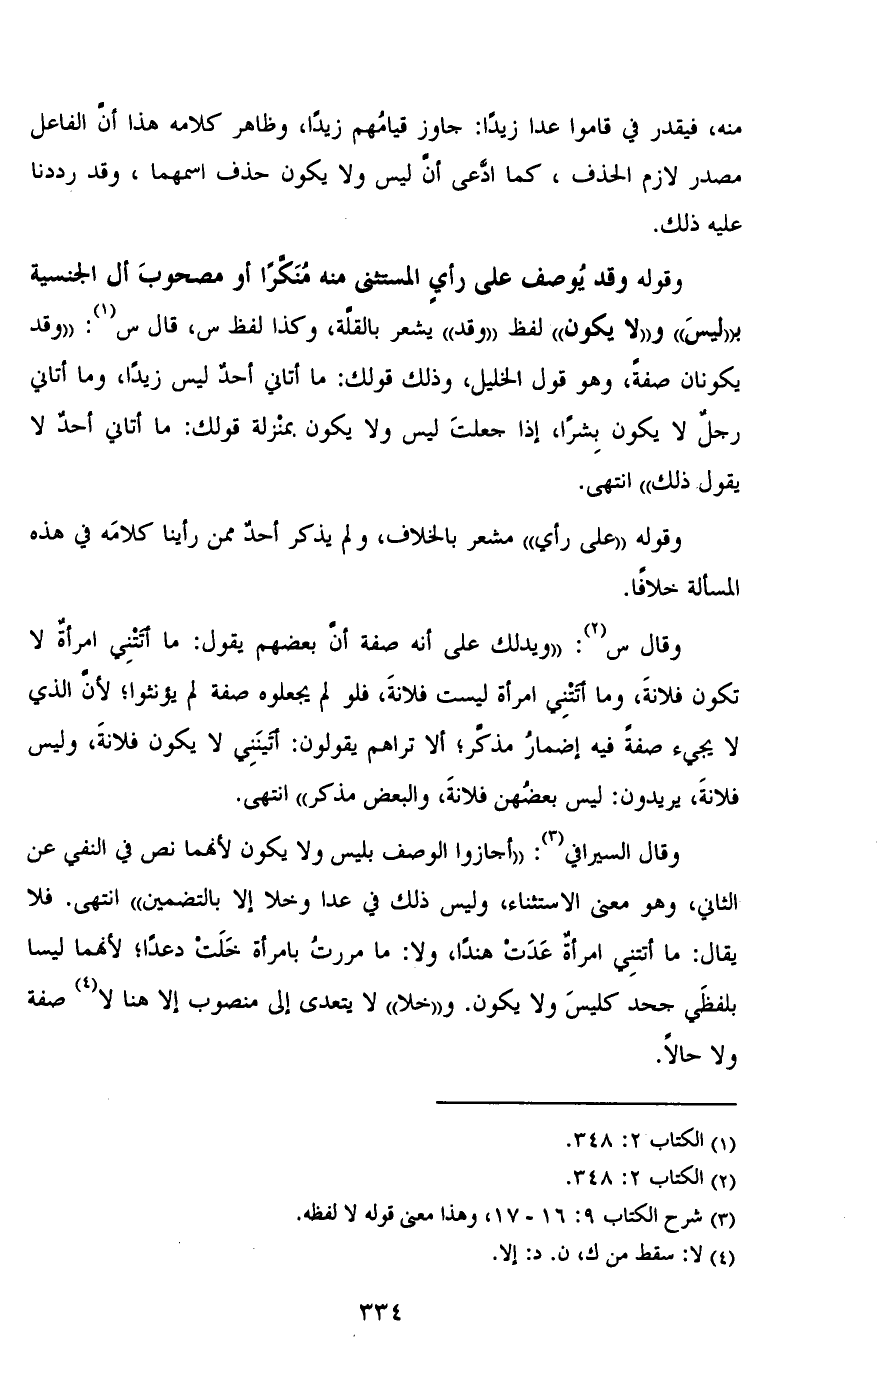 منه، فيقدر في قاموا عدا زيدًا: جاوز قيامُهم زيدًا، وظاهر كلامه هذا أنَّ الفاعل
مصدر لازم الحذف ، كما ادَّعى أنَّ ليس ولا يكون حذف اسمهما ، وقد رددنا
عليه ذلك.
وقوله وقد يُوصف على رأيٍ المستثنى منه مُنَكَّرًا أو مصحوبَ أل الجنسية
بـ((ليسَ)) و((لا يكون)) لفظ ((وقد)) يشعر بالقلَّة، وكذا لفظ س، قال س(١): ((وقد
يكونان صفةً، وهو قول الخليل، وذلك قولك: ما أتاني أحدٌ ليس زيدًا، وما أتاني
رجلٌ لا يكون بِشرًا، إذا جعلتَ ليس ولا يكون بمنْزلة قولك: ما أتاني أحدٌ لا
يقول ذلك)) انتهى.
وقوله ((على رأي)) مشعر بالخلاف، ولم يذكر أحدٌ ممن رأينا كلامَه في هذه
المسألة خلافًا.
وقال س(٢): ((ويدلك على أنه صفة أنَّ بعضهم يقول: ما أَتَتْنِي امرأةٌ لا
تكون فلانةَ، وما أَتَتْنِي امرأة ليست فلانةَ، فلو لم يجعلوه صفة لم يؤنثوا؛ لأنَّ الذي
لا يجيء صفةً فيه إضمارُ مذكَّر؛ ألا تراهم يقولون: أَتَينَنِي لا يكون فلانةَ، وليس
فلانةَ، يريدون: ليس بعضُهن فلانةَ، والبعض مذكر)) انتهى.
وقال السيرافي(٣): ((أجازوا الوصف بليس ولا يكون لأنهما نص في النفي عن
الثاني، وهو معنى الاستثناء، وليس ذلك في عدا وخلا إلا بالتضمين)) انتهى. فلا
يقال: ما أتتنِي امرأةٌ عَدَتْ هندًا، ولا: ما مررتُ بامرأة خَلَتْ دعدًا؛ لأنهما ليسا
بلفظَي جحد كليسَ ولا يكون. و((خلا)) لا يتعدى إلى منصوب إلا هنا لا(٤) صفة
ولا حالاً.
(١) الكتاب ٢: ٣٤٨.
(٢) الكتاب ٢: ٣٤٨.
(٣) شرح الكتاب ٩: ١٦ - ١٧، وهذا معنى قوله لا لفظه.
(٤) لا: سقط من ك، ن. د: إلا.
٣٣٤